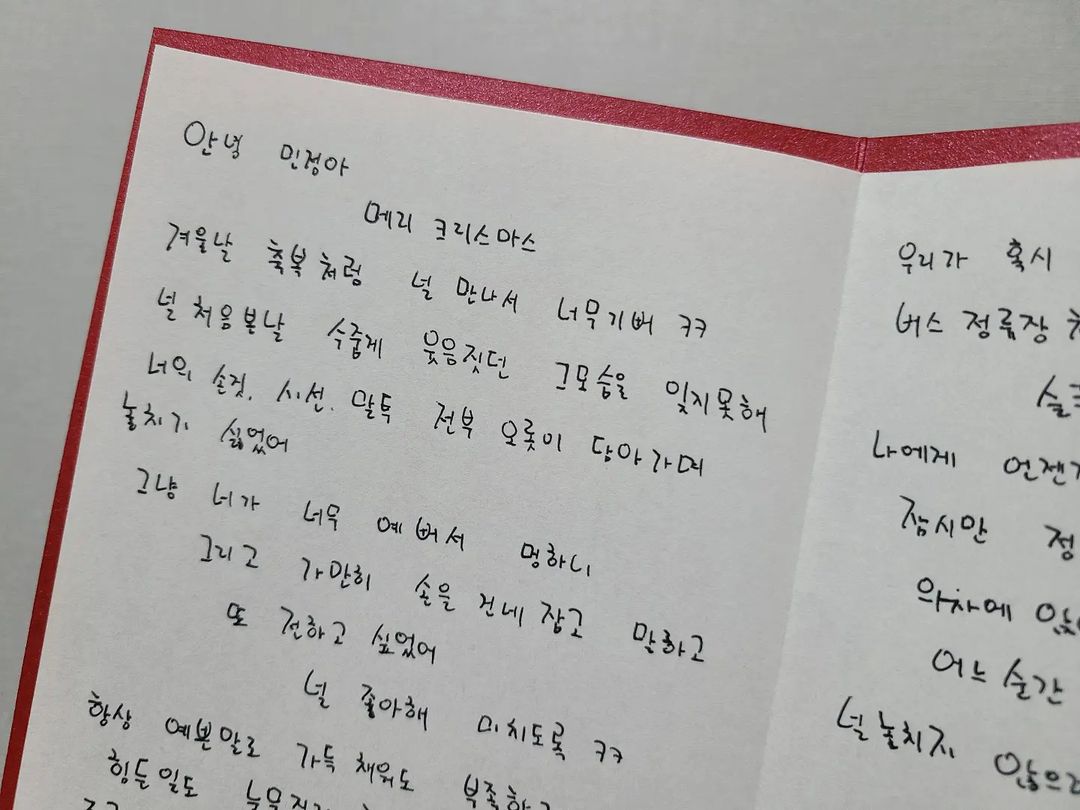 안녕 민정아
메리 크리스마스
겨울날 축복처럼 널 만나서 너무기뻐 ㅋㅋ
널 처음본날 수줍게 웃음짓던 그모습을 잊지못해
너의 손짓, 시선, 말투 전부 오롯이 담아가며
놓치기 싫었어
그냥 너가 너무 예뻐서 멍하니
그리고 가만히 손을 건네 잡고 말하고
또 전하고 싶었어
널 좋아해 미치도록 ㅋㅋ
항상 예쁜말로 가득 채워도 부족하고
힘든일도
우리가 혹시
버스 정류장
나에게 언젠가
잠시만
어느 순간
널놓치지